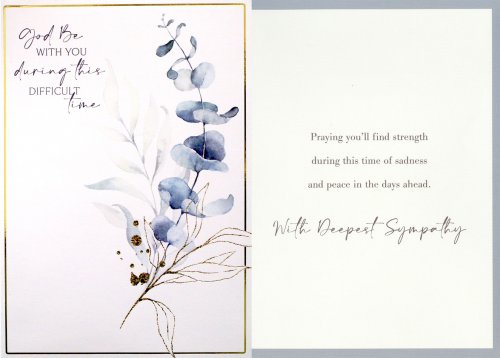 God Be
WITH YOU
during this
DIFFICULT
time
Praying you'll find strength
during this time of sadness
and peace in the days ahead.
With Deepest Sympathy